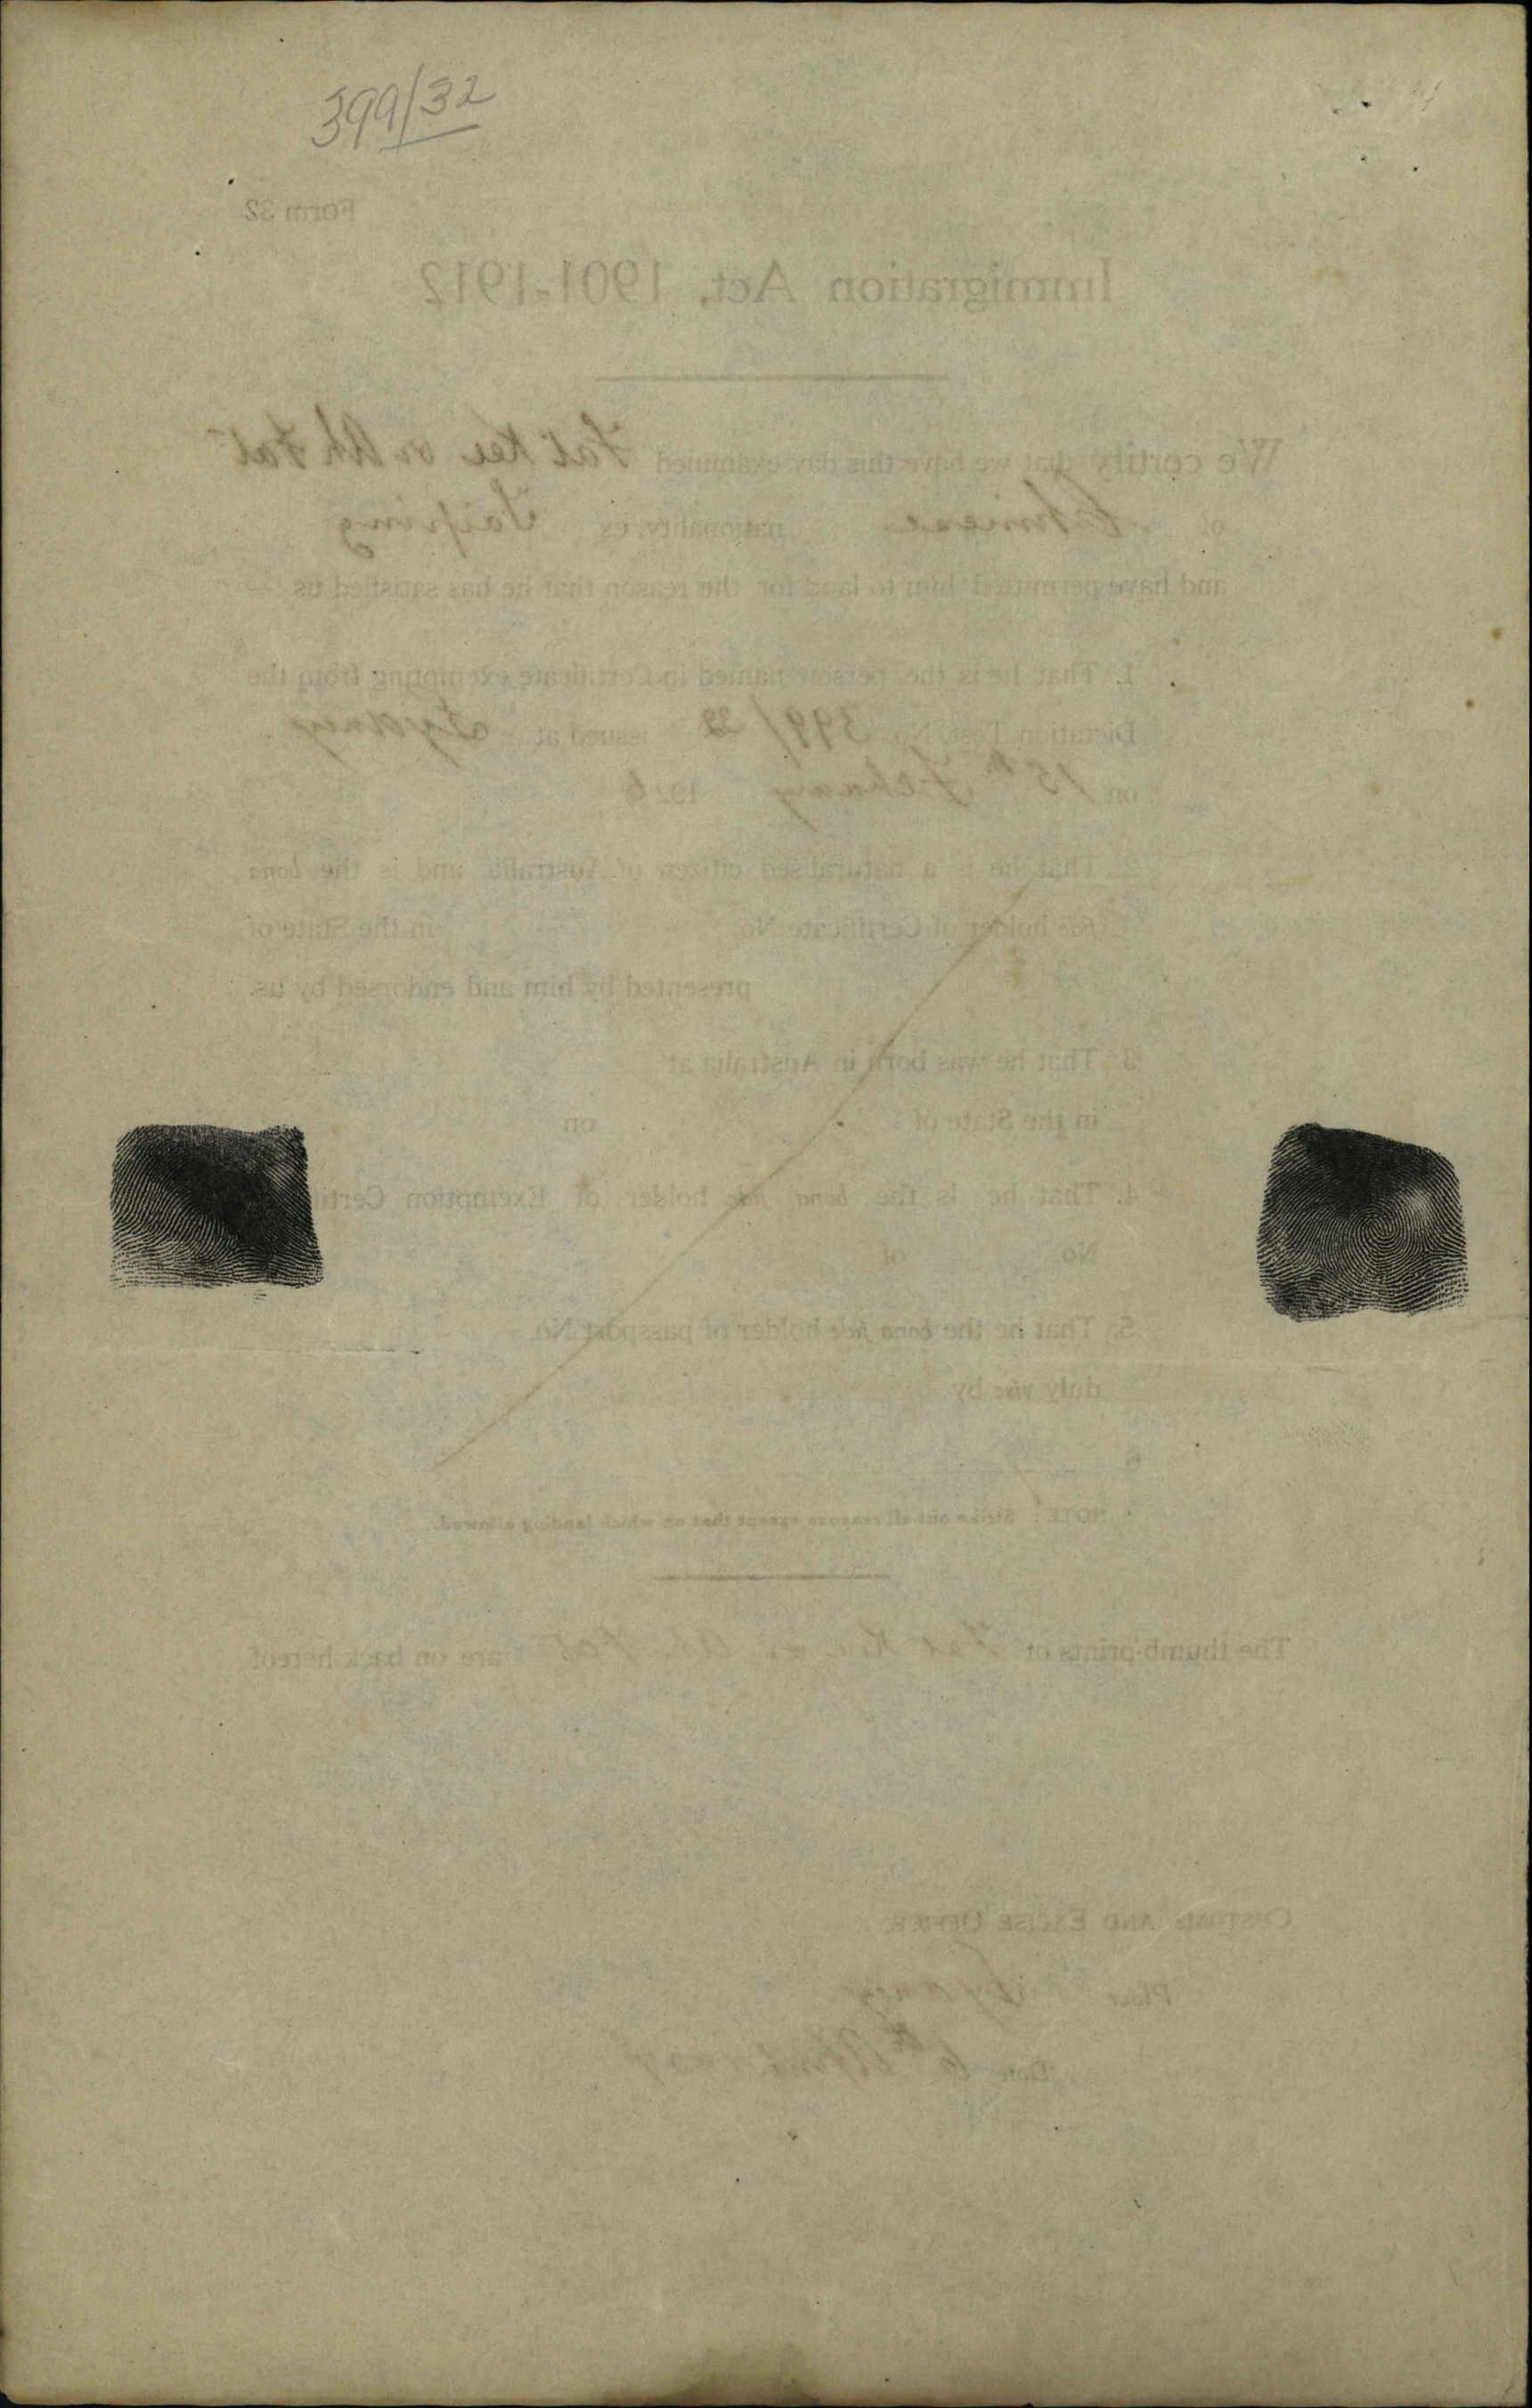 399/32
Form 32
Immigration Act, 1901-1912
We certify that we have this day examined Fat Kee or Ah Fat
of Chinese nationality ex Taiping
and have permitted him to land for the reason that he has satisfied us
1. That he is the person named in Certificate exempting from the
Dictation Test No. 399/32 issued at Sydney
on 15th February 192
2. That he is a naturalised citizen of Australia and is the bona
fide holder of Certificate No. in the State of
presented by him and endorsed by us.
3. That he was born in Australia at
in the State of on
4. That he is the bona fide holder of Exemption
No. of
5. That he the bona fide holder of passport No.
duly vise by
6
NOTE: Strike out all reasons except that on which landing allowed.
The thumb-prints of Fat Kee or Ah Fat are on back hereof
Customs and Excise Officer.
Place Sydney
Date 6th